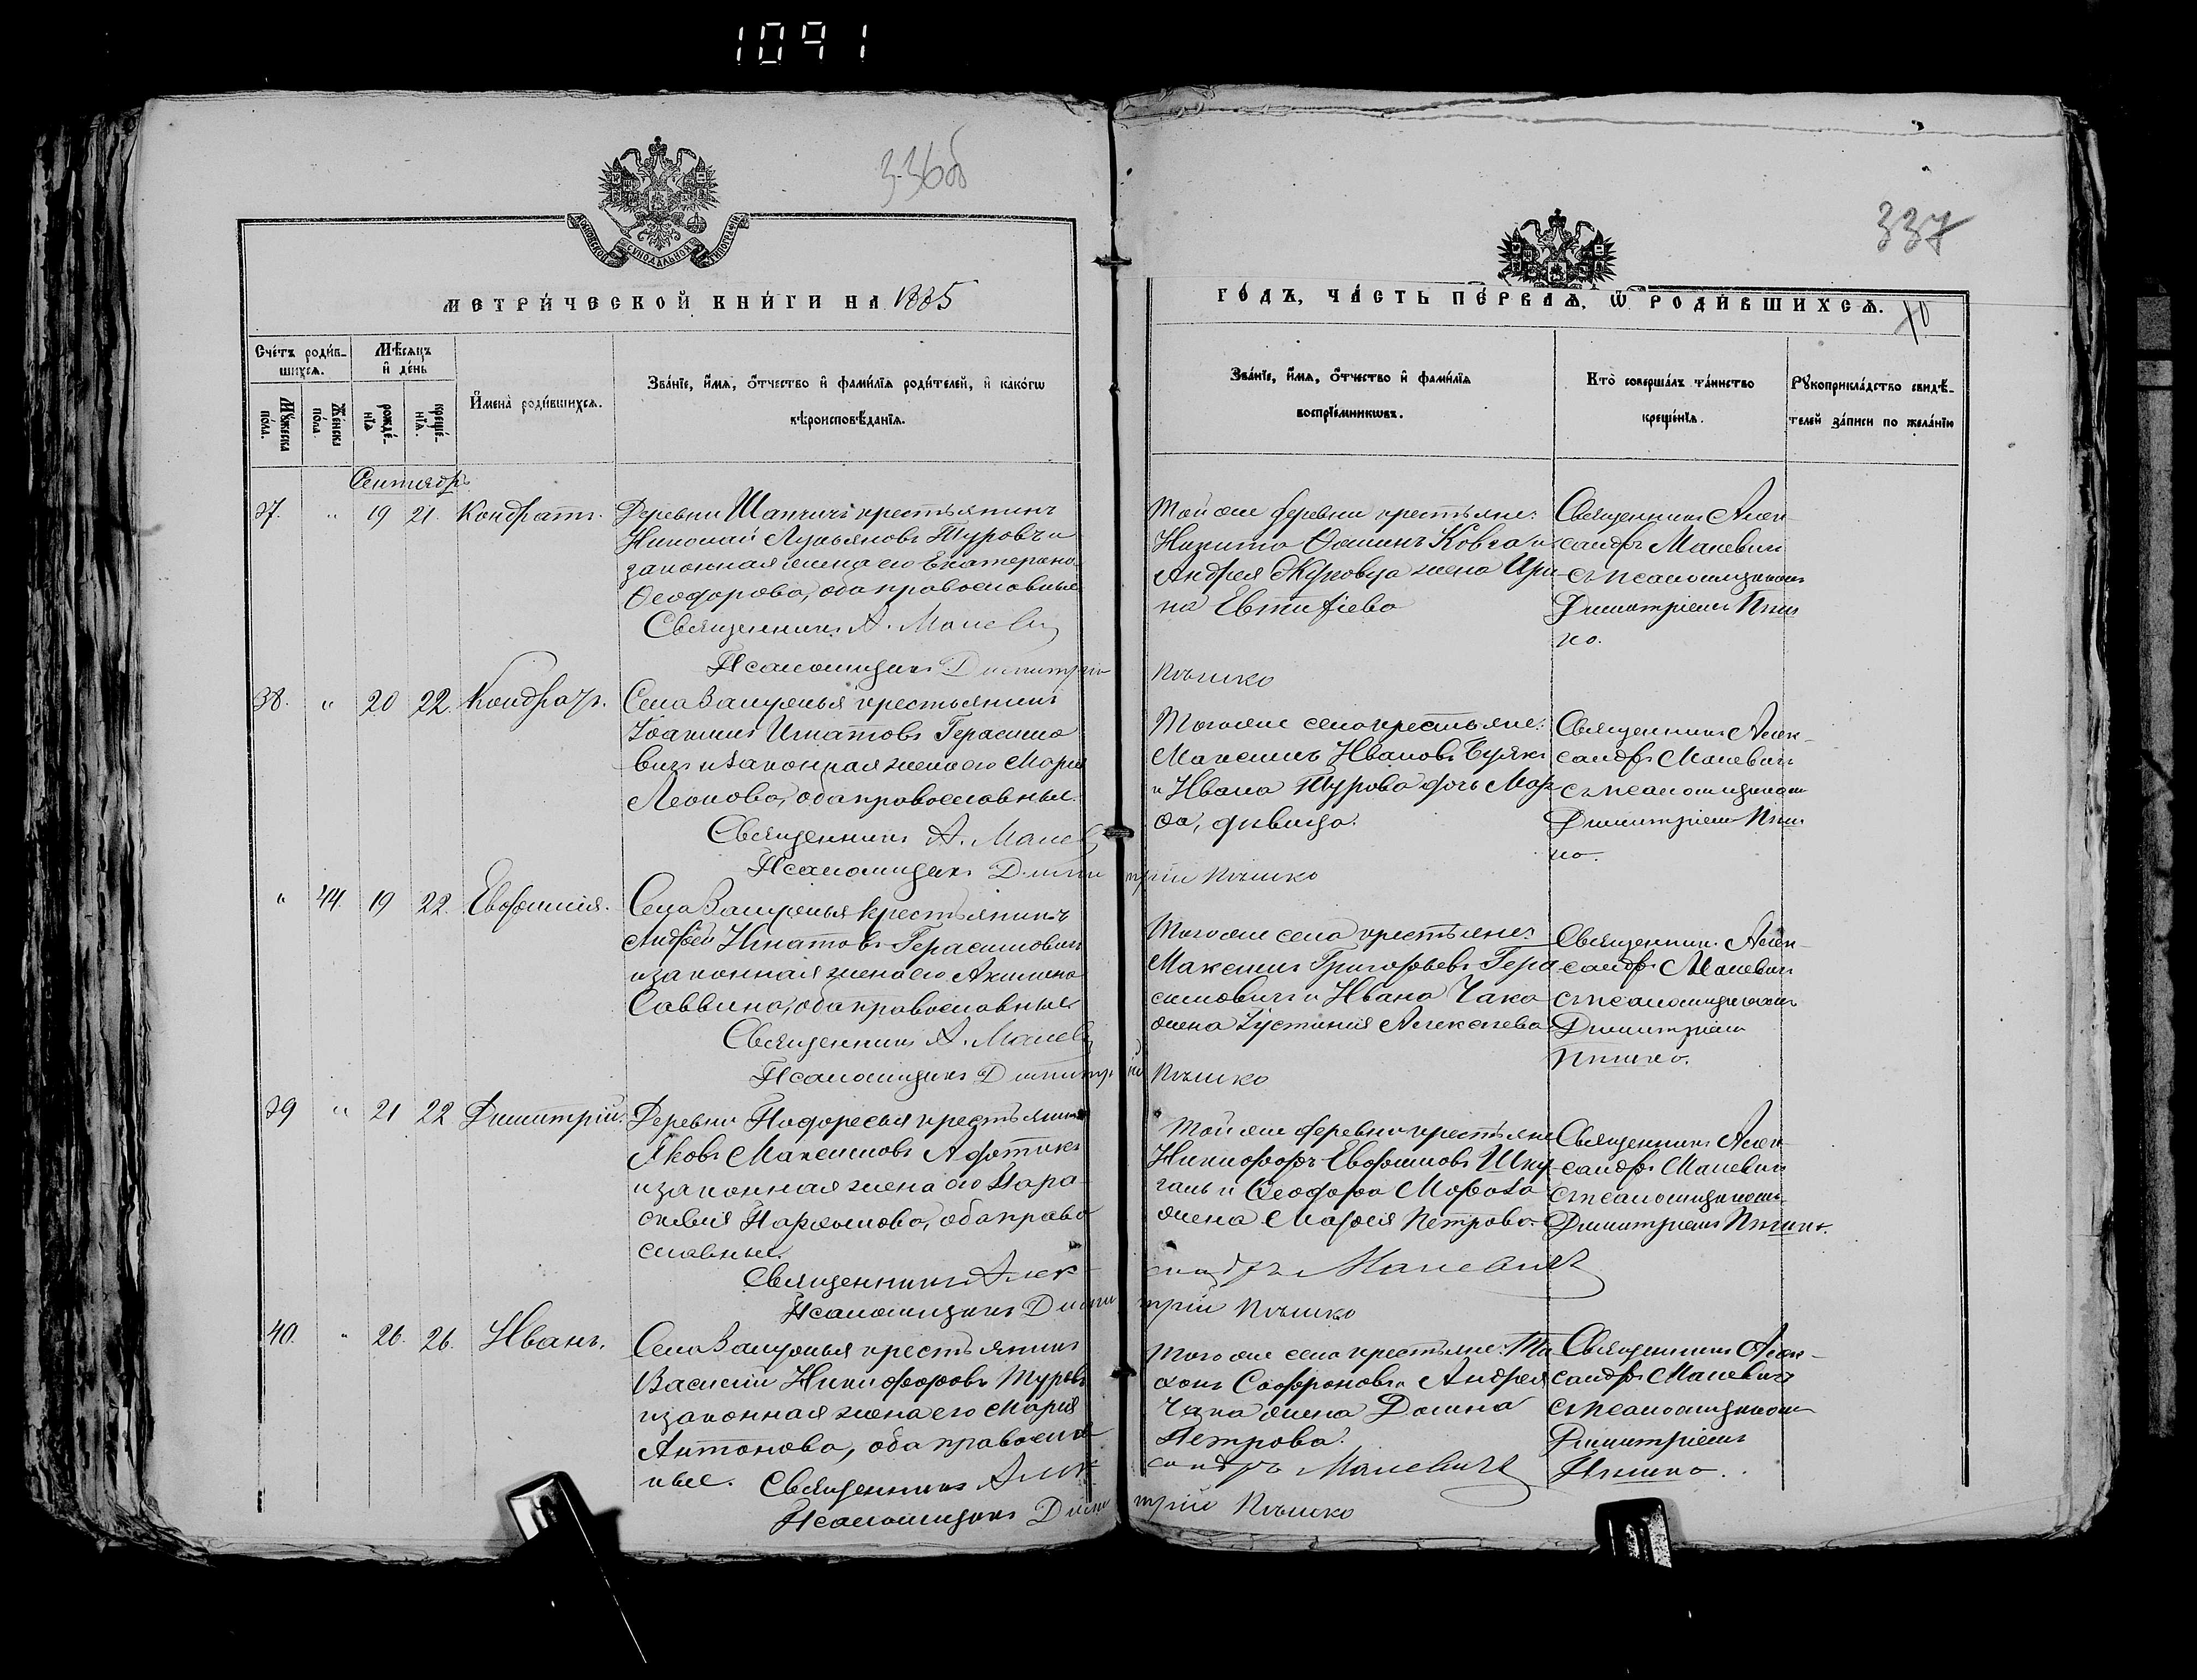 1091
336об
337
МОСКОВСКОЙ СИНОДАЛЬНОЙ ТИПОГРАФІИ
МЕТРИ́ЧЕСКОЙ КНИ́ГИ НА 1885
ГО́ДЪ, ЧА́СТЬ ПЕ́РВАѦ, Ѡ РОДИ́ВШИХСѦ. 10
Сче́тъ роди́в-
шихсѧ.
Мѣсѧцъ
и҆ де́нь
Мꙋ́жеска
по́ла.
Же́нска
по́ла
рожде́-
нїѧ
креще́-
нїѧ.
И҆мена̀ роди́вшихсѧ.
Зва́нїе, и҆́мѧ, ѻ҆́тчество и҆ фами́лїѧ роди́телей, и҆ како́гѡ
вѣроисповѣ́данїѧ.
Зва́нїе, и҆́мѧ, ѻ҆́тчество и҆ фами́лїѧ
воспрїе́мникѡвъ.
Кто̀ соверша́лъ та́инство
креще́нїѧ.
Рꙋкоприкла́дство свидѣ́-
телей за́писи по жела́нїю
Сентябрь
37. " 19 21. Кондратъ.
Деревни Шапчичъ крестьянинъ
Николай Лукьяновъ Туровъ и
законная жена его Екатерина
Ѳеодорова, оба православные
Священникъ А. Малевич
Псаломщикъ Димитрій Пышко
Той же деревни крестьяне:
Никита Ѳоминъ Ковга и
Андрея жена Ири-
на Евтифіева
Священникъ Алек-
сандръ Малевичъ
съ псаломщикомъ
Димитріемъ Пыш
ко.
38. " 20 22. Кондратъ.
Села крестьянинъ
Іоаннъ Игнатовъ Герасимо
вичъ и законная жена его Марія
Леонова, оба православные.
Священникъ А. Малев
Псаломщикъ Димитрій Пышко
Того же села крестьяне:
Максимъ Ивановъ
и Ивана Турова дочь Мар-
ѳа, дѣвица.
Священникъ Алек-
сандръ Малевичъ
съ псаломщикомъ
Димитріемъ Пыш
ко.
" 44. 19 22. Евфимія.
Села крестьянинъ
Андрей Игнатовъ Герасимовичъ
и законная жена его Акилина
Саввина, оба православные
Священникъ А. Малев
Псаломщикъ Димитрій Пышко
Того же села крестьяне:
Максимъ Григорьевъ Гера
симовичъ и Ивана Чака
жена Іустинія Алексѣева
Священникъ Алек-
сандръ Малевичъ
съ псаломщикомъ
Димитріемъ
Пышко.
39 " 21 22 Димитрій.
Деревни Подоресья крестьянинъ
Яковъ Максимовъ
и законная жена его Пара
скевія Пархомова, оба право
славные.
Священникъ Александръ Малевичъ
Псаломщикъ Димитрій Пышко
Той же деревни крестьяне
Никифоръ Евфимовъ
и Ѳеодора Мороза
жена Марѳа Петрова.
Священникъ Алек-
сандръ Малевичъ
съ псаломщикомъ
Димитріемъ Пышко.
40. " 26. 26. Иванъ.
Села крестьянинъ
Василій Никифоровъ Туровъ
и законная жена его Марія
Антонова, оба православ
ные. Священникъ Александръ Малевичъ
Псаломщикъ Димитрій Пышко
Того же села крестьяне:
Софроновъ и Андрея
Чака жена Домна
Петрова.
Священникъ Алек-
сандръ Малевичъ
съ псаломщикомъ
Димитріемъ
Пышко.